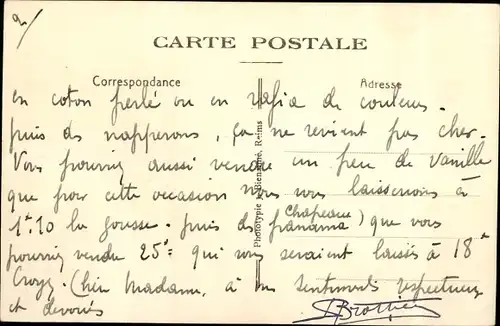 2/
CARTE POSTALE
Correspondance
Adresse
en coton perlé ou en rafia de couleurs.
puis des napperons, ça ne revient pas cher.
Vous pourriez aussi vendre un peu de vanille
que pour cette occasion nous vous laisserions à
1f10 la gousse. puis des chapeaux (panama) que vous
pourriez vendre 25f qui vous seraient laissés à 18f
Croyez Chère Madame, à mes sentiments respectueux
et dévoués
Phototypie J. Bienaimé, Reims